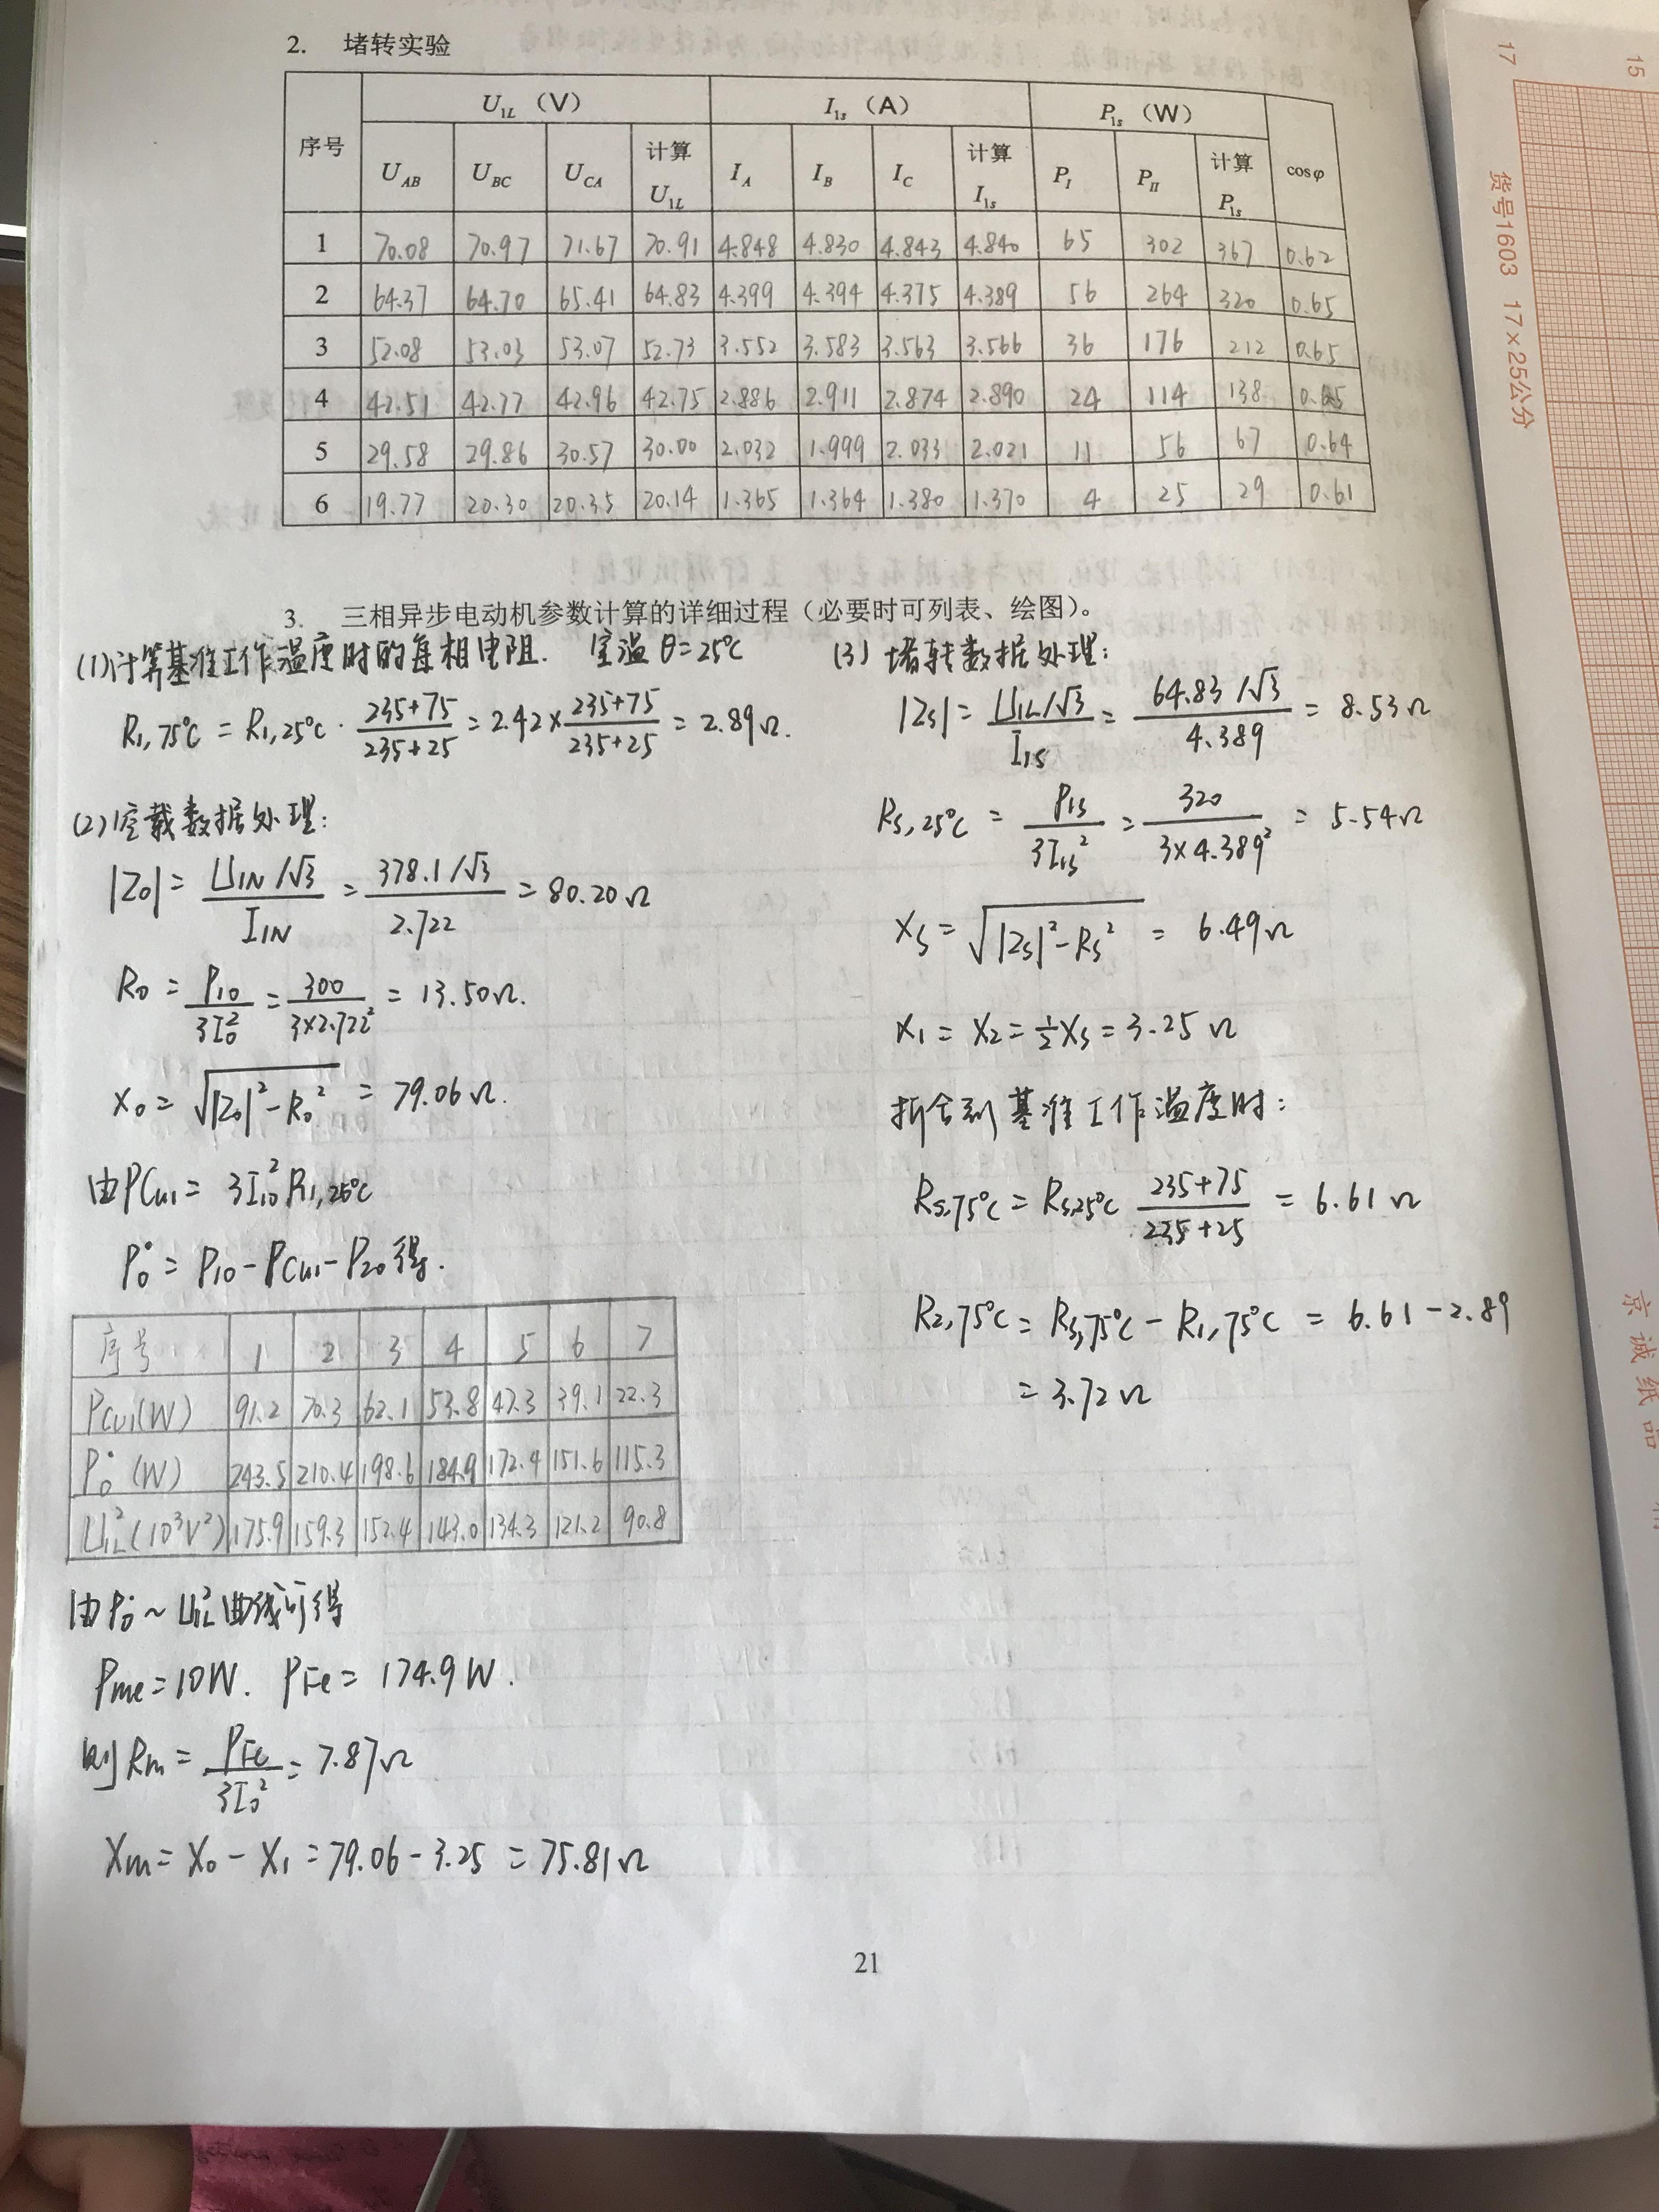 2. 堵转实验
序号 U₁L（V） I₁s（A） P₁s（W） cosφ
U_AB U_BC U_CA 计算 U₁L I_A I_B I_C 计算 I₁s P_I P_II 计算 P₁s
1 70.08 70.97 71.67 70.91 4.848 4.830 4.843 4.840 65 302 367 0.62
2 64.37 64.70 65.41 64.83 4.399 4.394 4.375 4.389 56 264 320 0.65
3 52.08 53.03 53.07 52.73 3.552 3.583 3.563 3.566 36 176 212 0.65
4 42.51 42.77 42.96 42.75 2.886 2.911 2.874 2.890 24 114 138
5 29.58 29.86 30.57 30.00 2.032 1.999 2.033 2.021 11 56 67 0.64
6 19.77 20.30 20.35 20.14 1.365 1.364 1.380 1.370 4 25 29 0.61
3. 三相异步电动机参数计算的详细过程（必要时可列表、绘图）。
(1)计算基准工作温度时的每相电阻. 室温 θ=25℃
R₁,75℃ = R₁,25℃ · (235+75)/(235+25) = 2.42×(235+75)/(235+25) = 2.89Ω.
(2)空载数据处理:
|Z₀| = (U₁N/√3)/I₁N = (378.1/√3)/2.722 = 80.20Ω
R₀ = P₁₀/3I₀² = 300/(3×2.722²) = 13.50Ω.
X₀ = √(|Z₀|²-R₀²) = 79.06Ω.
由PCu₁ = 3I₁₀²R₁,25℃
P₀' = P₁₀-PCu₁-P₂₀ 得.
序号 1 2 3 4 5 6 7
PCu₁(W) 91.2 70.3 62.1 53.8 47.3 39.1 22.3
P₀'(W) 243.5 210.4 198.6 184.9 172.4 151.6 115.3
U₁L²(10³V²) 175.9 159.3 152.4 143.0 134.3 121.2 90.8
由P₀'~U₁L²曲线可得
Pme=10W. PFe = 174.9W.
则Rm = PFe/3I₀² = 7.87Ω
Xm = X₀ - X₁ = 79.06-3.25 = 75.81Ω
(3) 堵转数据处理:
|Zs| = (U₁L/√3)/I₁s = (64.83/√3)/4.389 = 8.53Ω
Rs,25℃ = P₁s/3I₁s² = 320/(3×4.389²) = 5.54Ω
Xs = √(|Zs|²-Rs²) = 6.49Ω
X₁ = X₂ = ½Xs = 3.25Ω
折合到基准工作温度时:
Rs,75℃ = Rs,25℃ (235+75)/(235+25) = 6.61Ω
R₂,75℃ = Rs,75℃ - R₁,75℃ = 6.61-2.89
= 3.72Ω
21
17
15
货号1603 17×25公分
京诚纸品